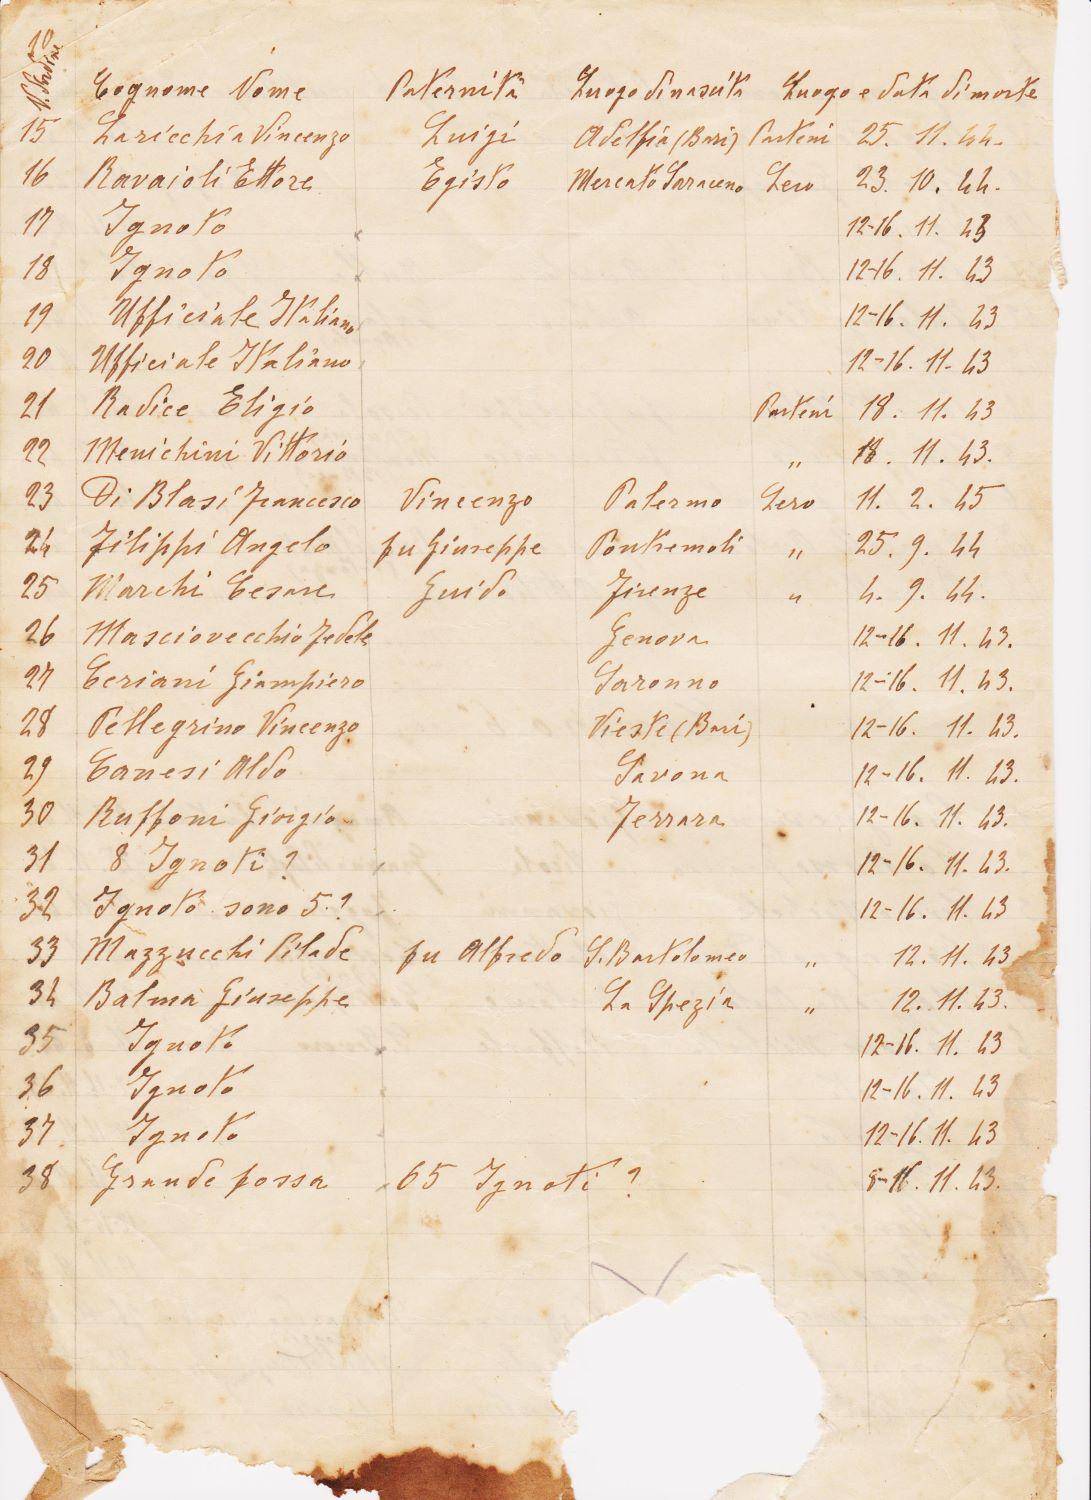 10
N. Ordine Cognome Nome Paternità Luogo di nascita Luogo e data di morte
15 Laricchia Vincenzo Luigi Adelfia (Bari) Parteni 25. 11. 44.
16 Ravaioli Ettore Egisto Mercato Saraceno Lero 23. 10. 44.
17 Ignoto 12-16. 11. 43
18 Ignoto 12-16. 11. 43
19 Ufficiale Italiano 12-16. 11. 43
20 Ufficiale Italiano 12-16. 11. 43
21 Radice Eligio Parteni 18. 11. 43
22 Menichini Vittorio " 18. 11. 43.
23 Di Blasi Francesco Vincenzo Palermo Lero 11. 2. 45
24 Filippi Angelo fu Giuseppe Pontremoli " 25. 9. 44
25 Marchi Cesare Guido Firenze " 4. 9. 44.
26 Masciovecchio Fedele Genova 12-16. 11. 43.
27 Ceriani Giampiero Saronno 12-16. 11. 43.
28 Pellegrino Vincenzo Vieste (Bari) 12-16. 11. 43.
29 Canesi Aldo Savona 12-16. 11. 43.
30 Ruffoni Giorgio Ferrara 12-16. 11. 43.
31 8 Ignoti ? 12-16. 11. 43.
32 Ignoto sono 5. ? 12-16. 11. 43
33 Mazzucchi Pilade fu Alfredo S. Bartolomeo " 12. 11. 43
34 Balma Giuseppe La Spezia " 12. 11. 43.
35 Ignoto 12-16. 11. 43
36 Ignoto 12-16. 11. 43
37 Ignoto 12-16. 11. 43
38 Grande fossa 65 Ignoti ? 11. 43.